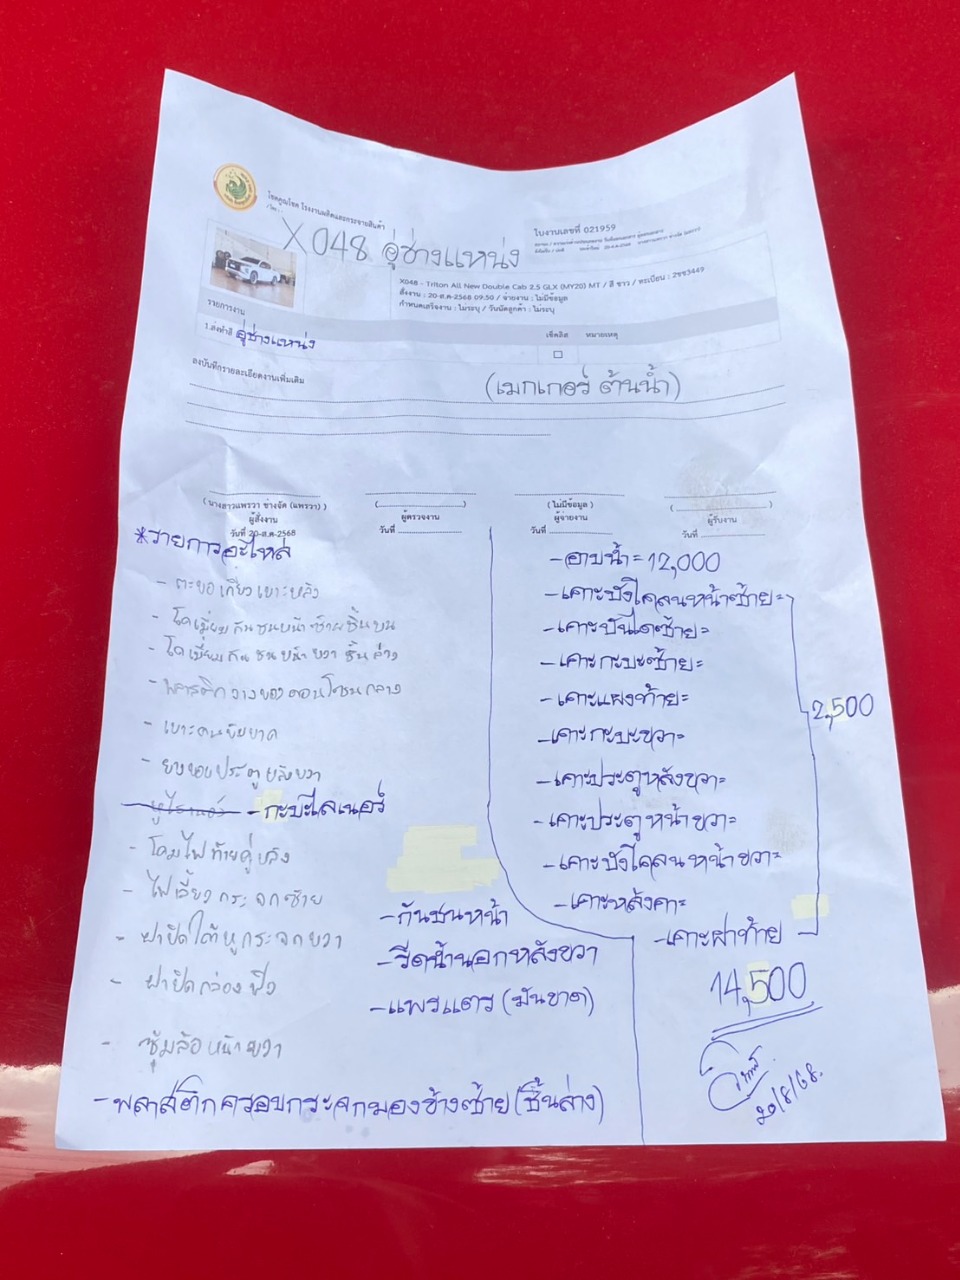 โชคคูณโชค โรงงานผลิตและกระจายสินค้า
ใบงานเลขที่ 021959
X048 อู่ช่างแหน่ง
X048 - Triton All New Double Cab 2.5 GLX (MY20) MT / สี ขาว / ทะเบียน : 2ขข3449
สั่งงาน : 20-ส.ค-2568 09:50 / จ่ายงาน : ไม่มีข้อมูล
กำหนดเสร็จงาน : ไม่ระบุ / วันนัดลูกค้า : ไม่ระบุ
รายการงาน
เช็คลิส หมายเหตุ
1.ส่งทำสี อู่ช่างแหน่ง
ลงบันทึกรายละเอียดงานเพิ่มเติม
(เมกเกอร์ ต้นน้ำ)
( นางสาวแพรวา ช่างจัด (แพรวา) )
(ไม่มีข้อมูล )
ผู้สั่งงาน
ผู้ตรวจงาน
ผู้จ่ายงาน
ผู้รับงาน
วันที่ 20-ส.ค-2568
วันที่
วันที่
วันที่
*รายการอะไหล่
- ตะขอเกี่ยวเบาะหลัง
- โครเมี่ยมกันชนหน้าซ้ายชิ้นบน
- โครเมี่ยมกันชนหน้าขวาชิ้นล่าง
- พลาสติกวางของคอนโซนกลาง
- เบาะคนขับขาด
- ยางขอบประตูหลังขวา
- กะบะไลเนอร์
- โคมไฟท้ายคู่หลัง
- ไฟเลี้ยวกระจกซ้าย
- ฝาปิดใต้หูกระจกขวา
- ฝาปิดกล่องฟิว
- ซุ้มล้อหน้าขวา
- กันชนหน้า
- รีดน้ำนอกหลังขวา
- แพรแตร (มันขาด)
- พลาสติกครอบกระจกมองข้างซ้าย (ชิ้นล่าง)
- อาบน้ำ = 12,000
- เคาะบังโคลนหน้าซ้าย=
- เคาะบันไดซ้าย=
- เคาะกะบะซ้าย=
- เคาะแผงท้าย=
- เคาะกะบะขวา=
- เคาะประตูหลังขวา=
- เคาะประตูหน้าขวา=
- เคาะบังโคลนหน้าขวา=
- เคาะหลังคา=
- เคาะฝาท้าย
2,500
14,500
20/8/68.